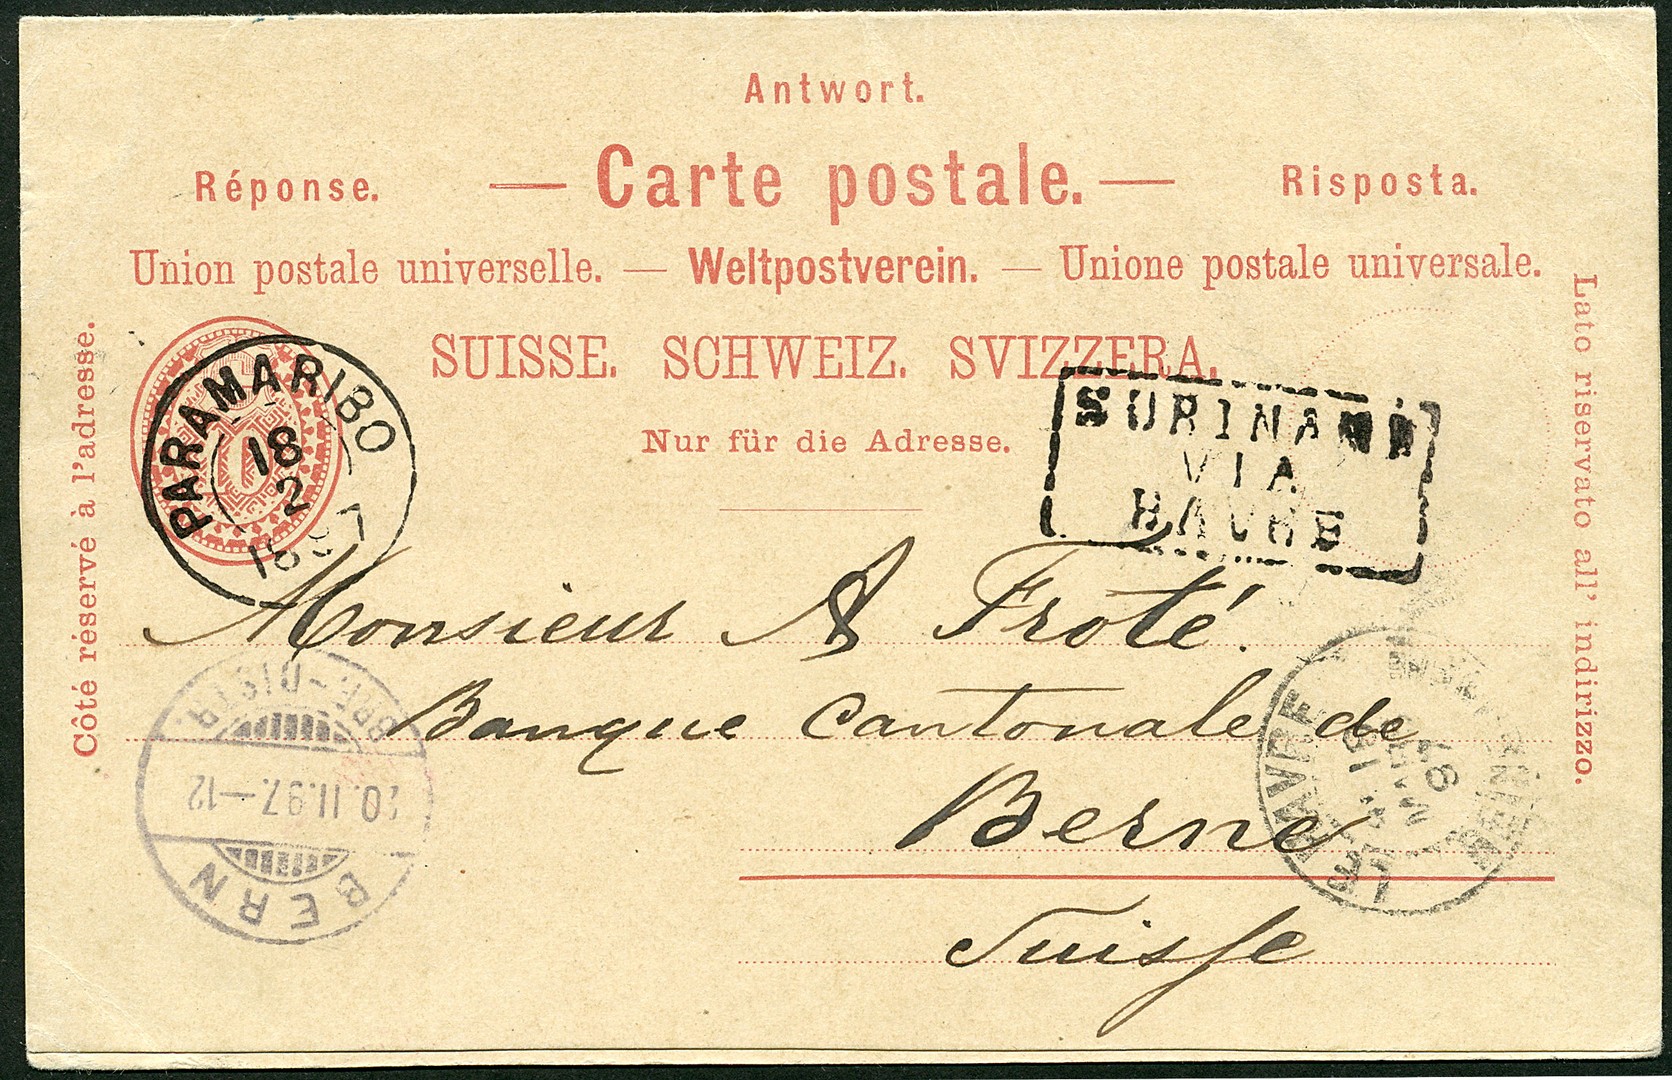 Antwort.
Réponse. — Carte postale. — Risposta.
Union postale universelle. — Weltpostverein. — Unione postale universale.
SUISSE. SCHWEIZ. SVIZZERA.
Nur für die Adresse.
Côté réservé à l'adresse.
Lato riservato all' indirizzo.
PARAMARIBO
18
2
1897
SURINAME
VIA
HAVRE
Monsieur A Froté.
Banque Cantonale de
Berne
Suisse
BRF.-DISTR.
20.II.97.-12
BERN
LE HAVRE